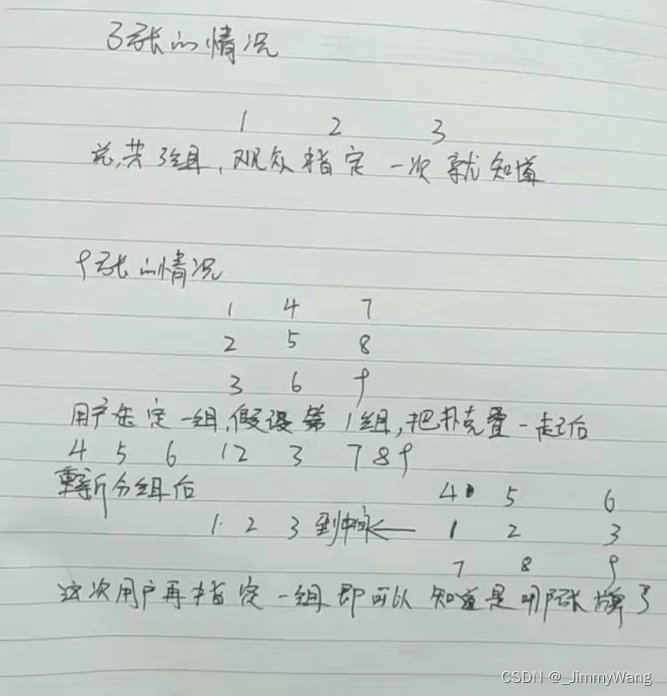 3张的情况
1 2 3
总共3组,观众指定一次就知道
9张的情况
1 4 7
2 5 8
3 6 9
用户指定一组,假设第1组,把扑克叠一起后
4 5 6 1 2 3 7 8 9
重新分组后
4 5 6
1 2 3 到中间← 1 2 3
7 8 9
这次用户再指定一组即可以知道是哪张牌了
CSDN @_JimmyWang